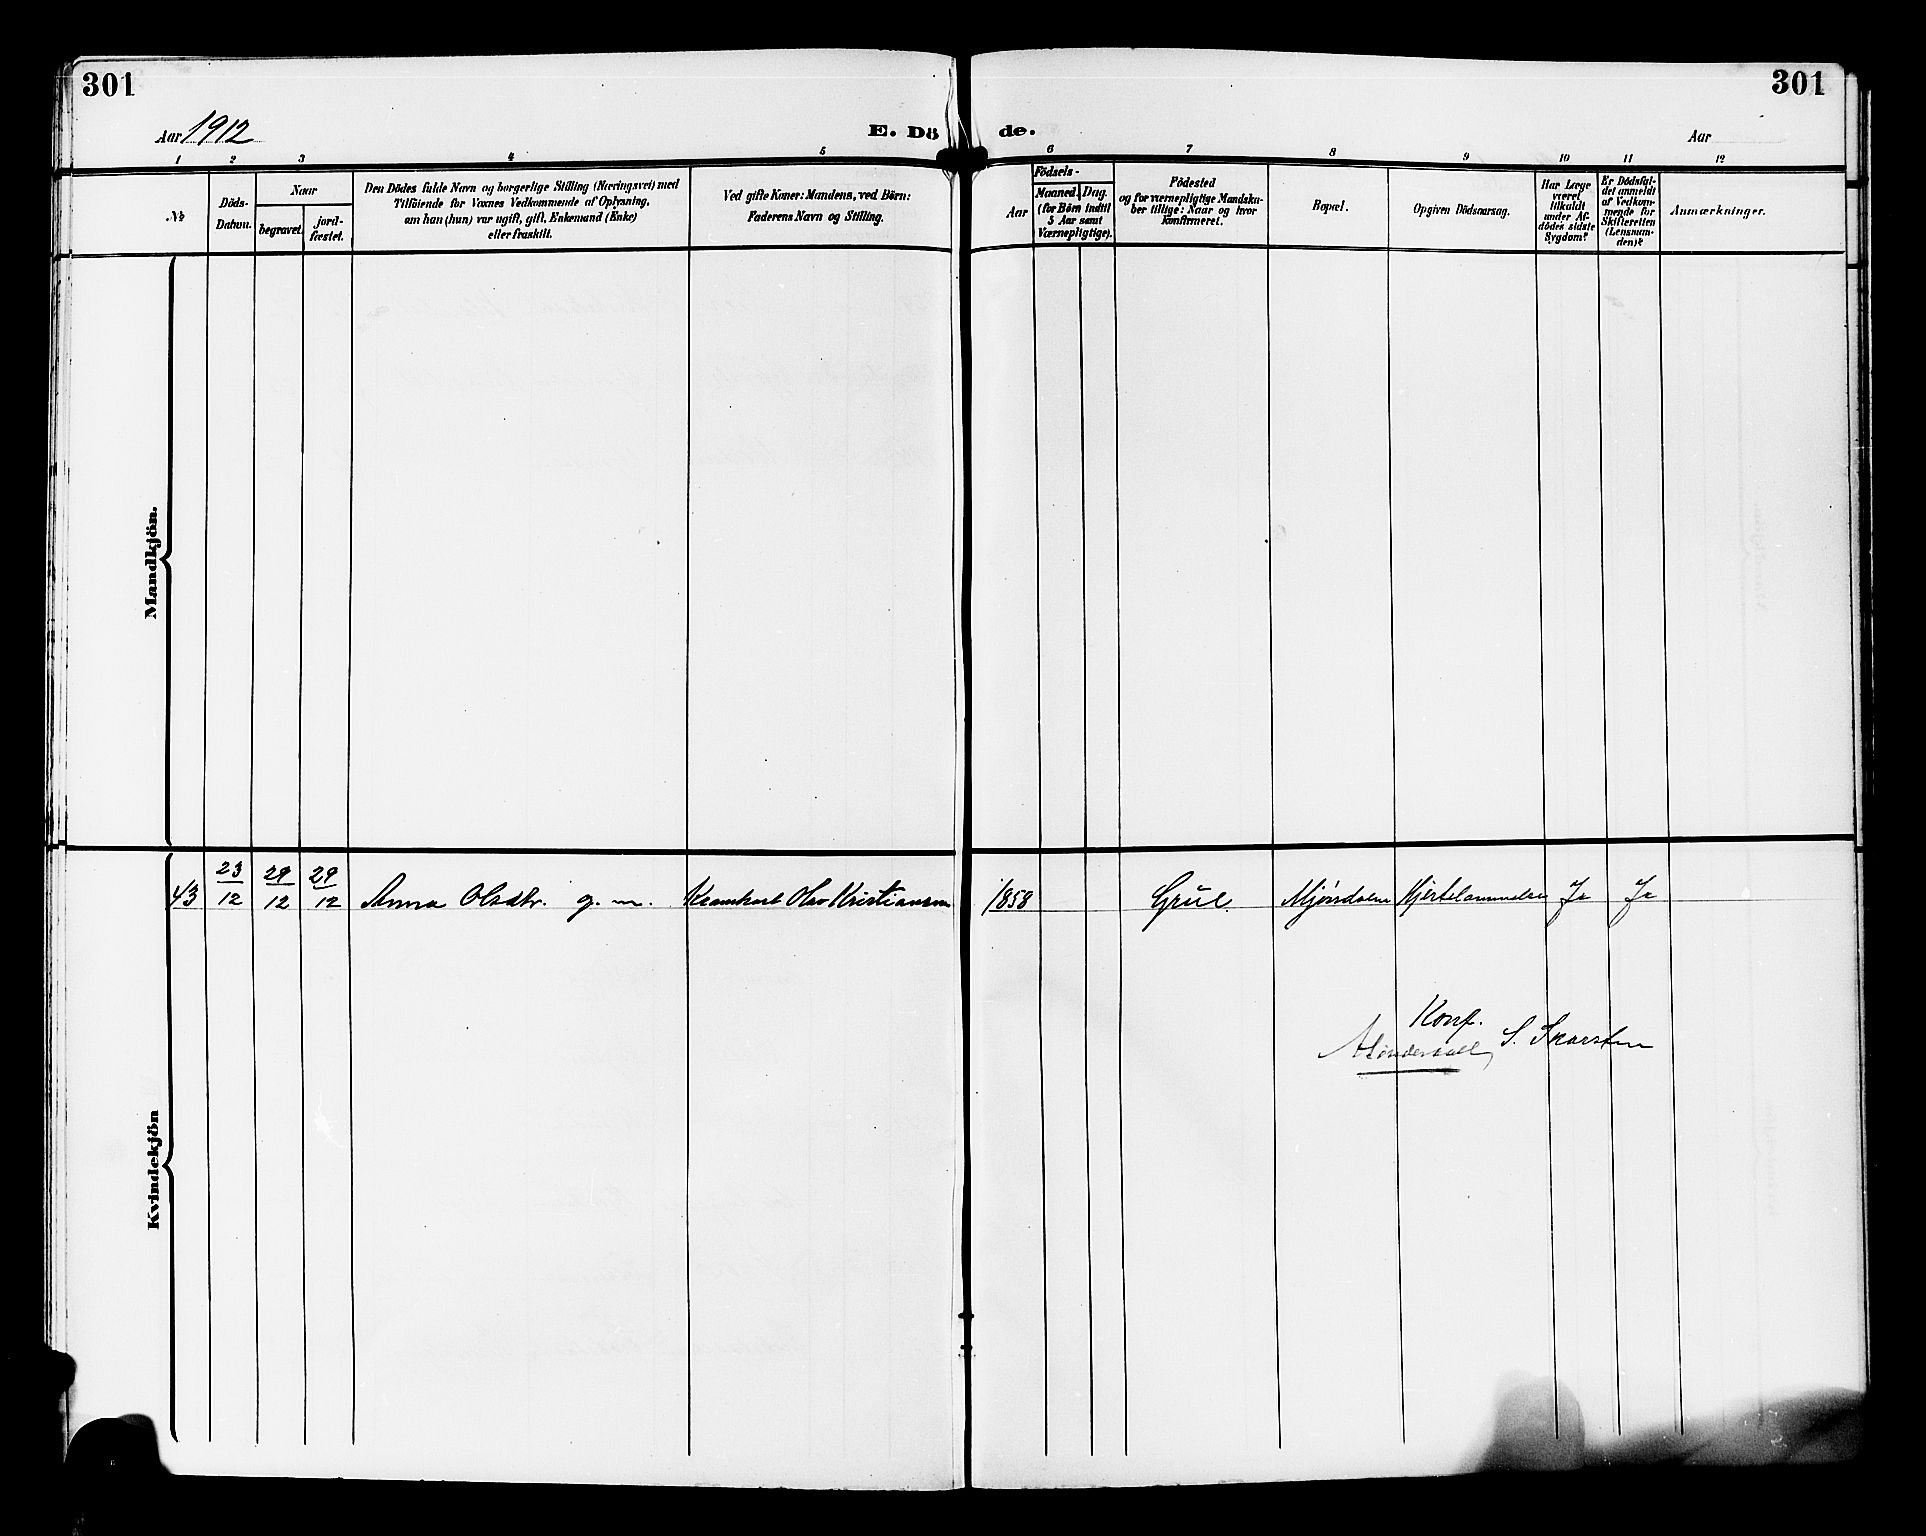 301
301
Aar 1912
E. Dö
de.
Aar
1 2 3 4 5 6 7 8 9 10 11 12
No
Döds-
Datum.
Naar
begravet.
jord-
fæstet.
Den Dödes fulde Navn og borgerlige Stilling (Næringsvei) med
Tilföiende for Voxnes Vedkommende af Oplysning,
om han (hun) var ugift, gift, Enkemand (Enke)
eller fraskilt.
Ved gifte Koner: Mandens, ved Börn:
Faderens Navn og Stilling.
Födsels-
Aar
Maaned. Dag.
(for Börn indtil
5 Aar samt
Værnepligtige).
Födested
og for værnepligtige Mandska-
ber tillige: Naar og hvor
konfirmeret.
Bopæl.
Opgiven Dödsaarsag.
Har Læge
været
tilkaldt
under Af-
dödes sidste
Sygdom?
Er Dödsfal-
det anmeldt
af Vedkom-
mende for
Skifteretten
(Lensman-
den)?
Anmærkninger.
Mandkjön.
Kvindekjön
43 23/12 29/12 29/12 Anna Olsdtr. g. m. Olav Kristiansen 1858 Grue. Mjøndalen Hjertelammelse Ja Ja
Konf.
S. Skarsten